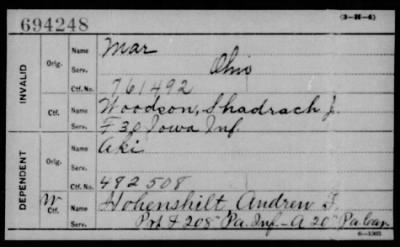 694248
(3-H-6)
INVALID
Orig.
Name Mar
Serv. Ohio
Ctf. No. 761492
Ctf.
Name Woodson, Shadrach J.
Serv. F 30 Iowa Inf.
DEPENDENT
Orig.
Name Aki
Serv.
Ctf. No. 482508
W Ctf.
Name Hohenshilt, Andrew F.
Serv. Pvt & 208" Pa. Inf - A 20" Pa Cav